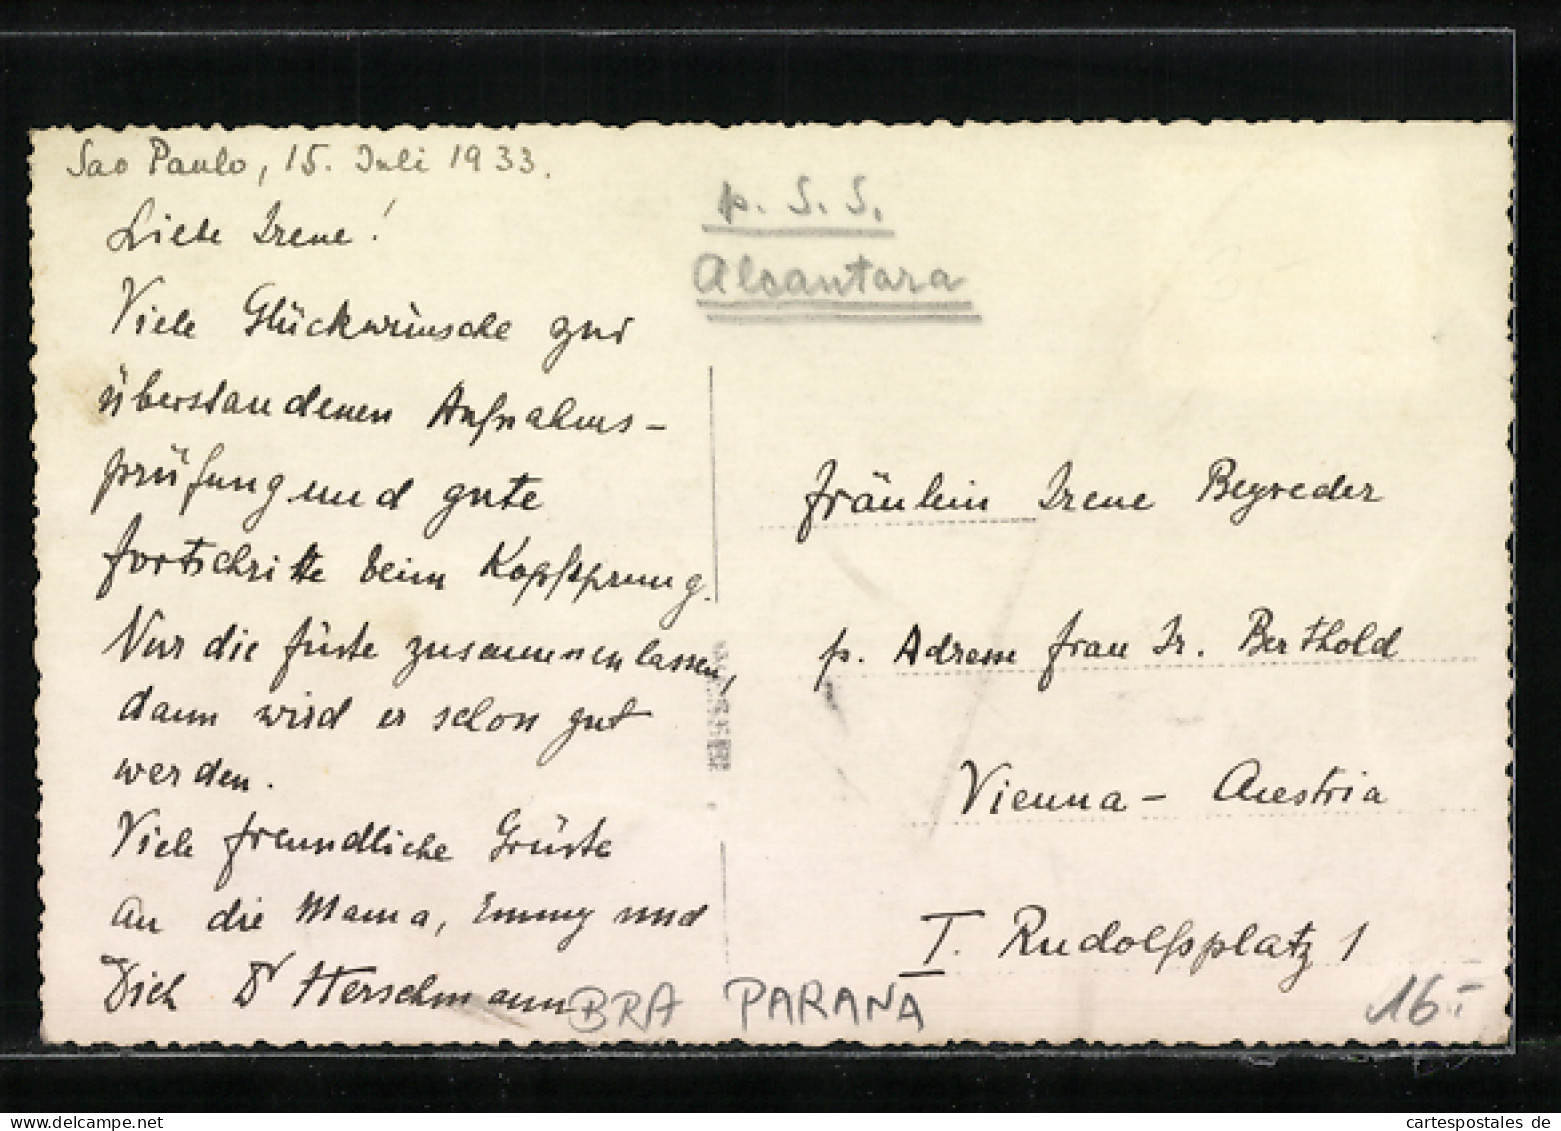 Sao Paulo, 15. Juli 1933.
Liebe Irene!
Viele Glückwünsche zur
überstandenen Aufnahms-
prüfung und gute
Fortschritte beim Kopfsprung.
Nur die Füsse zusammenlassen,
dann wird er schon gut
werden.
Viele freundliche Grüsse
an die Mama, Emmy und
Dich Dr Herschmann
p. S. S.
Alcantara
Fräulein Irene
p. Adresse Frau Dr. Berthold
Vienna - Austria
I. Rudolfsplatz 1
BRA PARANA
16.-
cartespostales de